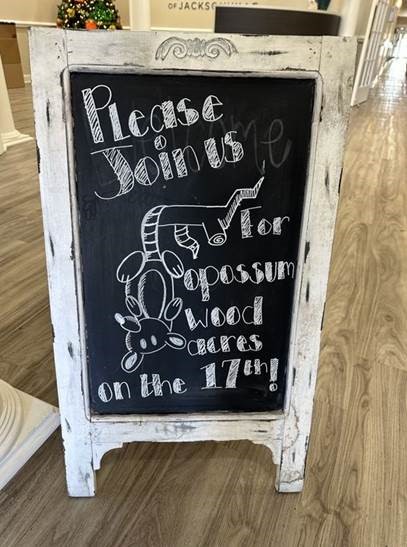 OF JACKSONVILLE
Please
Join us
For
opossum
wood
acres
on the 17th!